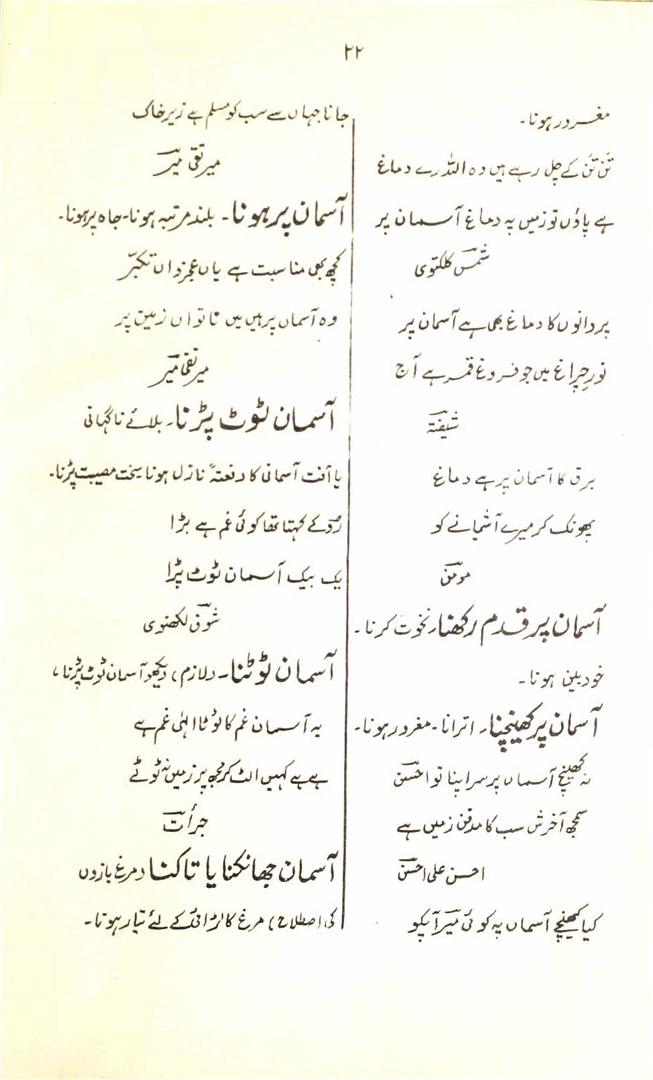 ۲۲
مغرور ہونا۔
تن تن کے چل رہے ہیں وہ اللہ رے دماغ
ہے پاؤں تو زمیں پہ دماغ آسمان پر
شمس کلکتوی
پروانوں کا دماغ بھی ہے آسمان پر
نورِ چراغ میں جو فروغ قمر ہے آج
شیفتہ
برق کا آسمان پر ہے دماغ
پھونک کر میرے آشیانے کو
مومن
آسمان پر قدم رکھنا۔ نخوت کرنا۔
خودبین ہونا۔
آسمان پر کھینچنا۔ اترانا۔ مغرور ہونا۔
نہ کھینچے آسماں پر سر اپنا تو احسن
سمجھ آخرش سب کا مدفن زمیں ہے
احسن علی احسن
کیا کھینچے آسماں پہ کوئی میر آپکو
جانا جہاں سے سب کو مسلم ہے زیر خاک
میر تقی میر
آسمان پر ہونا۔ بلند مرتبہ ہونا۔ جاہ پر ہونا۔
کچھ بھی مناسبت ہے یاں عجز واں تکبّر
وہ آسماں پر ہیں میں ناتواں زمین پر
میر تقی میر
آسمان ٹوٹ پڑنا۔ بلائے ناگہانی
یا آفت آسمانی کا دفعتہً نازل ہونا سخت مصیبت پڑنا۔
رو کے کہتا تھا کوئی غم ہے بڑا
یک بیک آسمان ٹوٹ پڑا
شوق لکھنوی
آسمان ٹوٹنا۔ (لازم) دیکھو آسمان ٹوٹ پڑنا،
یہ آسمان غم کا ٹوٹا الٰہی غم ہے
ہے ہے کہیں الٹ کر مجھ پر زمیں نہ ٹوٹے
جرأت
آسمان جھانکنا یا تاکنا (مرغ بازوں
کی اصطلاح) مرغ کا لڑائی کے لئے تیار ہونا۔